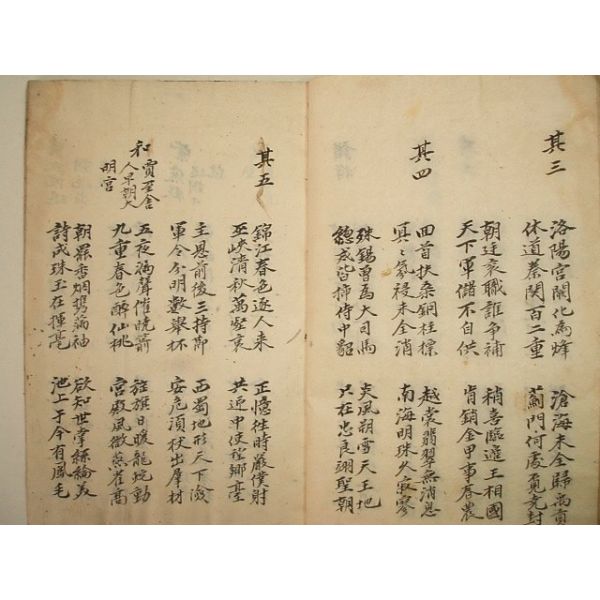 其三
洛陽宮闕化為烽
休道秦関百二重
滄海未全歸禹貢
薊門何處覓堯封
朝廷袞職誰爭補
天下軍儲不自供
稍喜臨邊王相國
肯銷金甲事春農
其四
回首扶桑銅柱標
冥〻氛祲未全消
越裳翡翠無消息
南海明珠久寂寥
殊錫曽為大司馬
總戎皆插侍中貂
炎風朔雪天王地
只在忠良翊聖朝
其五
錦江春色逐人来
巫峽清秋萬壑哀
正憶徃時嚴僕射
共迎中使望鄉臺
主恩前後三持節
軍令分明數舉杯
西蜀地形天下險
安危須仗出羣材
和賈至舍
人早朝大
明宮
五夜漏聲催曉箭
九重春色醉仙桃
旌旗日暖龍蛇動
宮殿風微燕雀高
朝罷香烟携滿袖
詩成珠玉在揮毫
欲知世掌絲綸美
池上于今有鳳毛